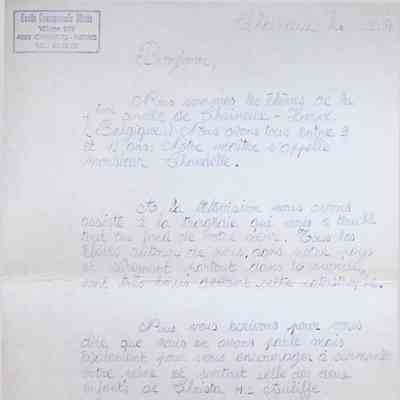 Ecole Communale Mixte
Charneux le
Bonjour,
Nous sommes les élèves de la
4ème année de Charneux - Herve
(Belgique). Nous avons tous entre 9
et 11 ans. Notre maître s'appelle
monsieur
A la télévision nous avons
assisté à la tragédie qui nous a
tout au fond de notre cœur. Tous les
élèves autour de nous, dans notre pays
et sûrement partout dans le monde,
sont très émus devant cette catastrophe.
Nous vous écrivons pour vous
dire que nous en avons parlé mais
également pour vous encourager à surmonter
votre peine et surtout celle des deux
enfants de Christa Mc Auliffe